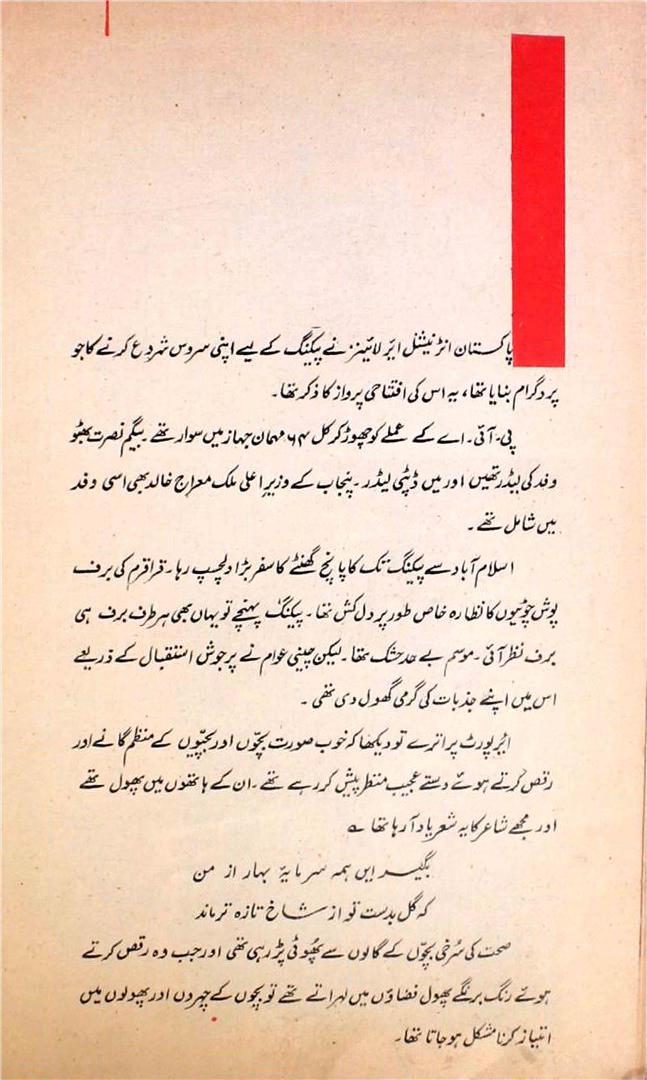 پاکستان انٹرنیشنل ایر لائینز نے پیکنگ کے لیے اپنی سروس شروع کرنے کا جو
پروگرام بنایا تھا، یہ اس کی افتتاحی پرواز کا ذکر تھا۔
پی۔ آئی۔ اے کے عملے کو چھوڑ کر کل ۶۴ مہمان جہاز میں سوار تھے۔ بیگم نصرت بھٹو
وفد کی لیڈر تھیں اور میں ڈپٹی لیڈر۔ پنجاب کے وزیر اعلیٰ ملک معراج خالد بھی اسی وفد
میں شامل تھے۔
اسلام آباد سے پیکنگ تک کا پانچ گھنٹے کا سفر بڑا دلچسپ رہا۔ قراقرم کی برف
پوش چوٹیوں کا نظارہ خاص طور پر دل کش تھا۔ پیکنگ پہنچے تو یہاں بھی ہر طرف برف ہی
برف نظر آئی۔ موسم بے حد خشک تھا۔ لیکن چینی عوام نے پرجوش استقبال کے ذریعے
اس میں اپنے جذبات کی گرمی گھول دی تھی۔
ایرپورٹ پر اترے تو دیکھا کہ خوب صورت بچّوں اور بچّیوں کے منظم گانے اور
رقص کرتے ہوئے دستے عجیب منظر پیش کر رہے تھے۔ ان کے ہاتھوں میں پھول تھے
اور مجھے شاعر کا یہ شعر یاد آ رہا تھا ؎
بگیر ایں ہمہ سرمایۂ بہار از من
کہ گل بدست تو از شاخ تازہ تر ماند
صحت کی سُرخی بچّوں کے گالوں سے پھُوٹی پڑ رہی تھی اور جب وہ رقص کرتے
ہوئے رنگ برنگے پھول فضاؤں میں لہراتے تھے تو بچوں کے چہروں اور پھولوں میں
امتیاز کرنا مشکل ہو جاتا تھا۔